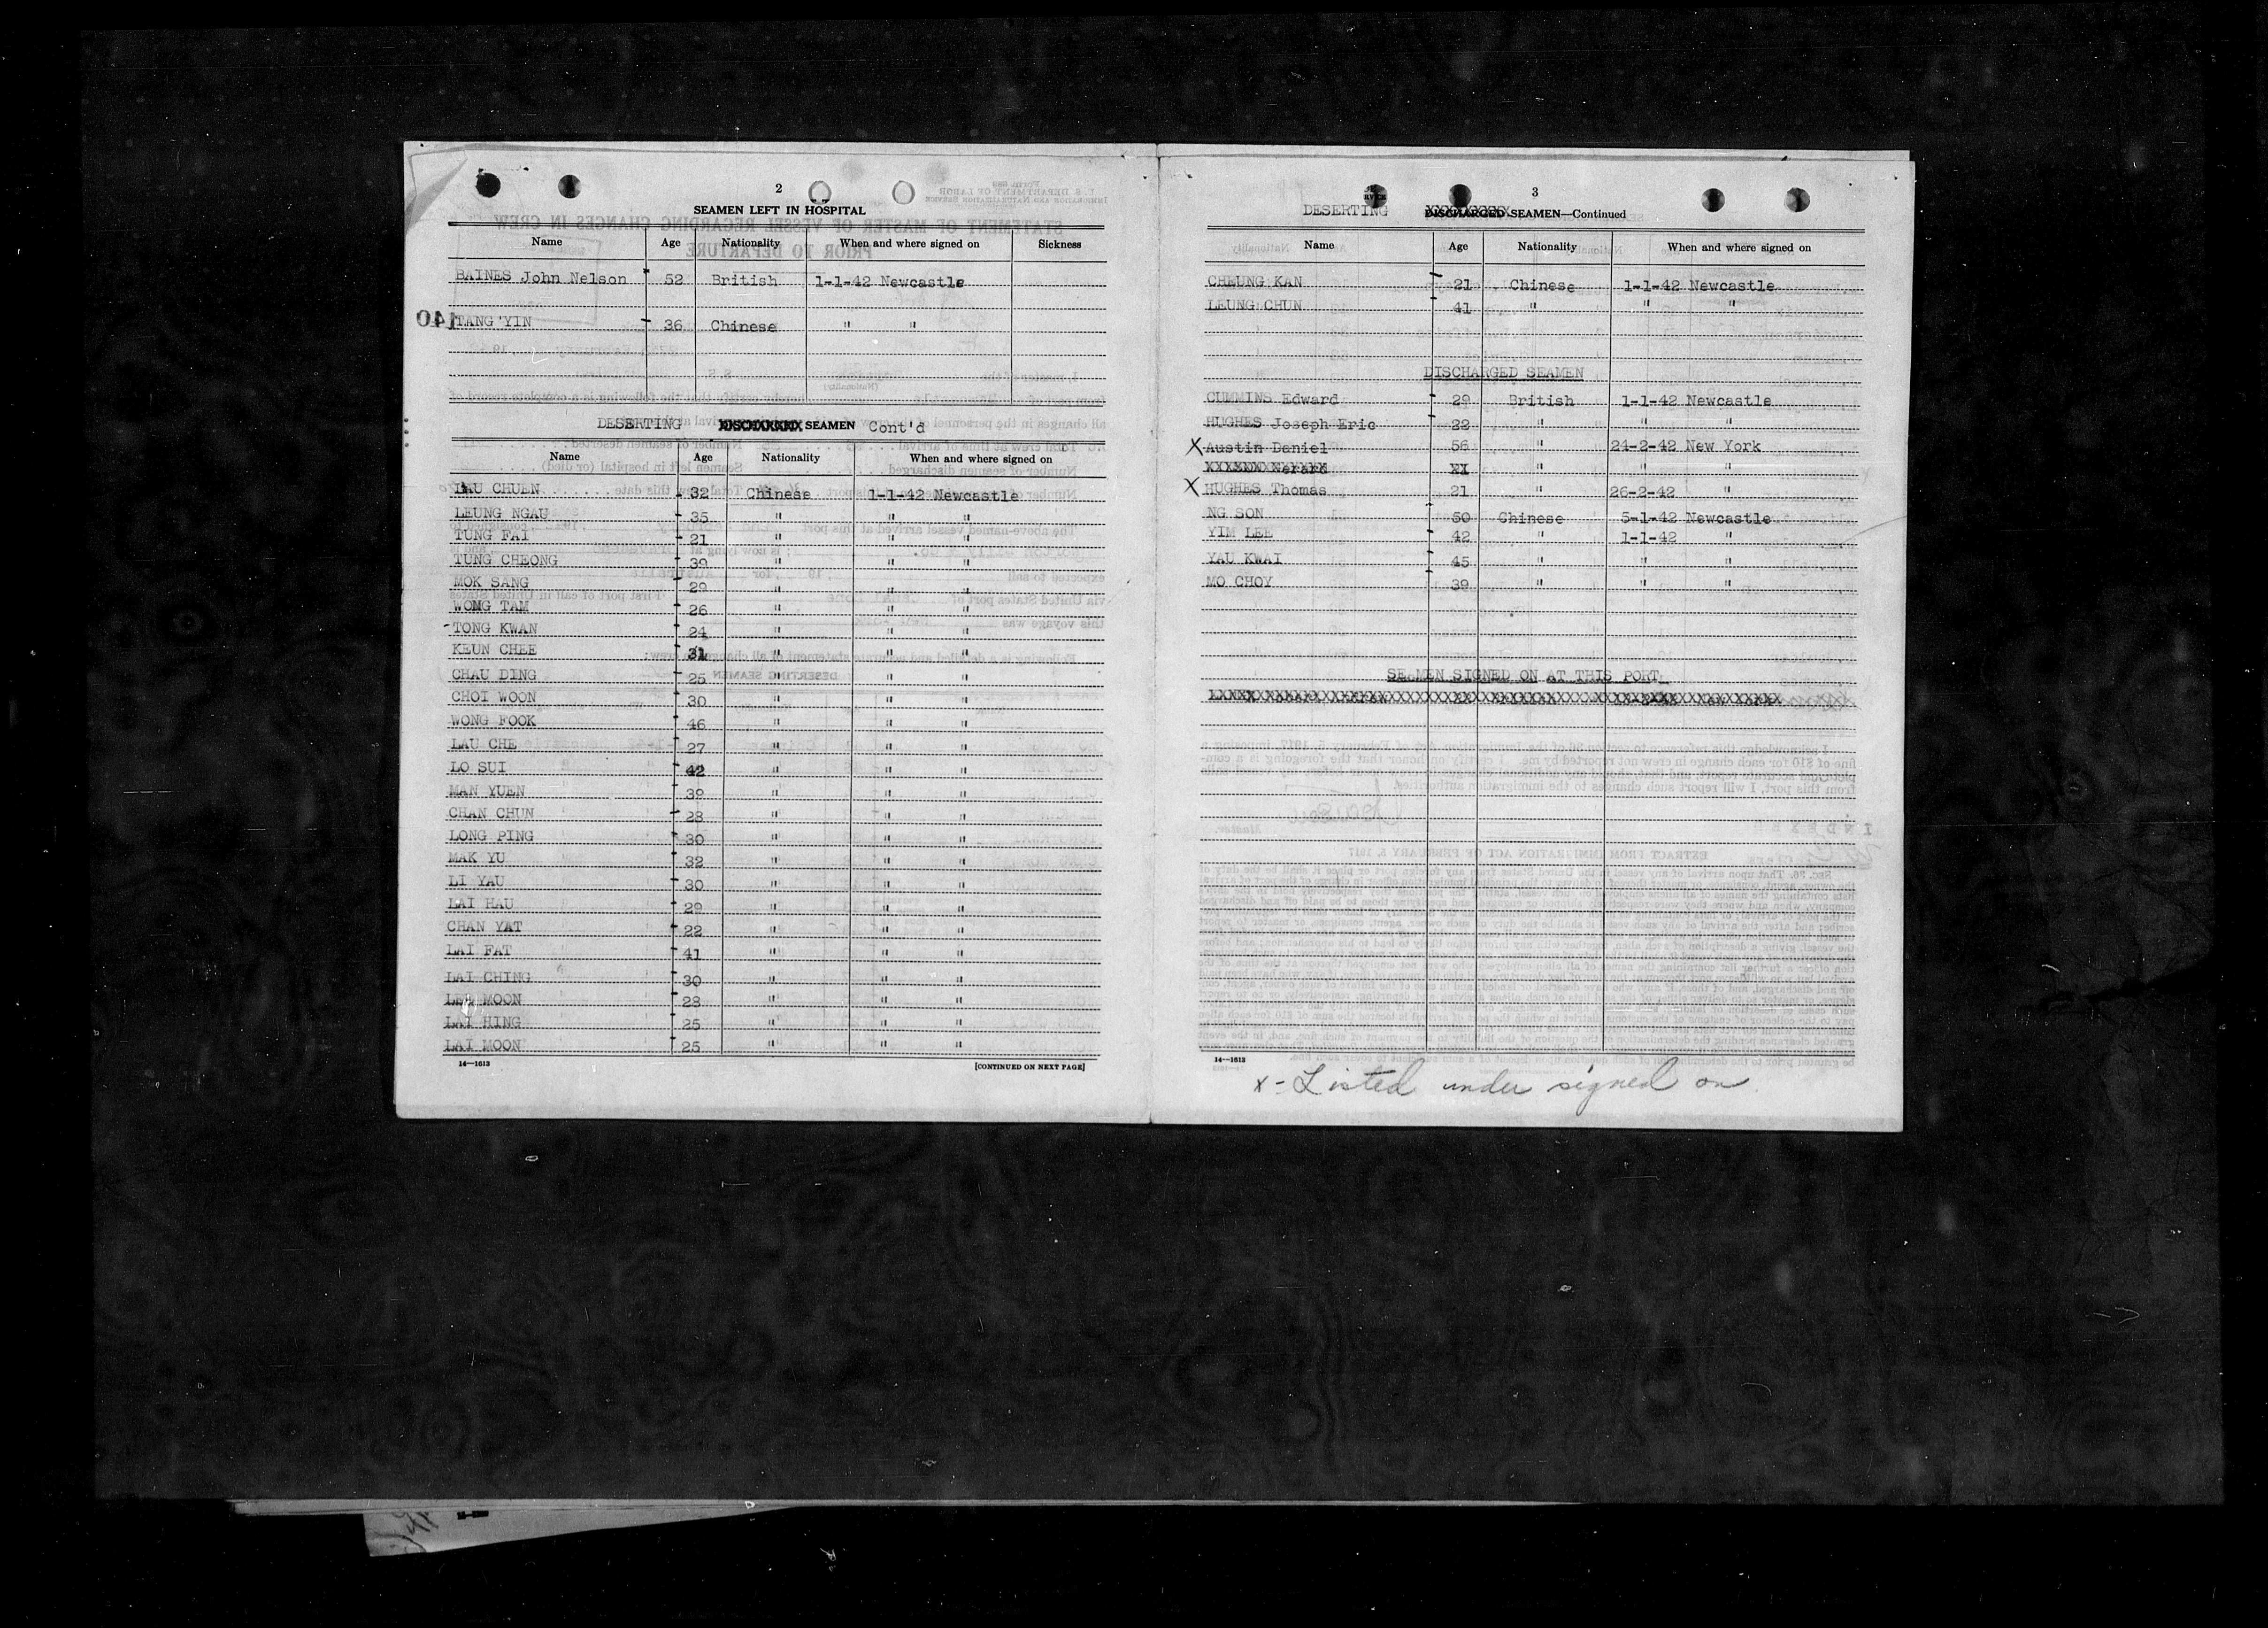 2
SEAMEN LEFT IN HOSPITAL
Name Age Nationality When and where signed on Sickness
BAINES John Nelson 52 British 1-1-42 Newcastle
TANG YIN 36 Chinese " "
DESERTING SEAMEN Cont'd
Name Age Nationality When and where signed on
LAU CHUEN 32 Chinese 1-1-42 Newcastle
LEUNG NGAU 35 " " "
TUNG FAI 21 " " "
TUNG CHEONG 39 " " "
MOK SANG 29 " " "
WONG TAM 26 " " "
TONG KWAN 24 " " "
KEUN CHEE 31 " " "
CHAU DING 25 " " "
CHOI WOON 30 " " "
WONG FOOK 46 " " "
LAU CHE 27 " " "
LO SUI 42 " " "
MAN YUEN 39 " " "
CHAN CHUN 28 " " "
LONG PING 30 " " "
MAK YU 32 " " "
LI YAU 30 " " "
LAI HAU 29 " " "
CHAN YAT 22 " " "
LAI FAT 41 " " "
LAI CHING 30 " " "
MOON 28 " " "
LAI HING 25 " " "
LAI MOON 25 " " "
14—1613 [CONTINUED ON NEXT PAGE]
3
DESERTING XXXXXXXX DISCHARGED SEAMEN—Continued
Name Age Nationality When and where signed on
CHEUNG KAN 21 Chinese 1-1-42 Newcastle
LEUNG CHUN 41 " " "
DISCHARGED SEAMEN
CUMMINS Edward 29 British 1-1-42 Newcastle
HUGHES Joseph Eric 22 " " "
X Austin Daniel 56 " 24-2-42 New York
" " "
X HUGHES Thomas 21 " 26-2-42 "
NG SON 50 Chinese 5-1-42 Newcastle
YIM LEE 42 " 1-1-42 "
YAU KWAI 45 " " "
MO CHOY 39 " " "
SEAMEN SIGNED ON AT THIS PORT
14—1613
x - Listed under signed on